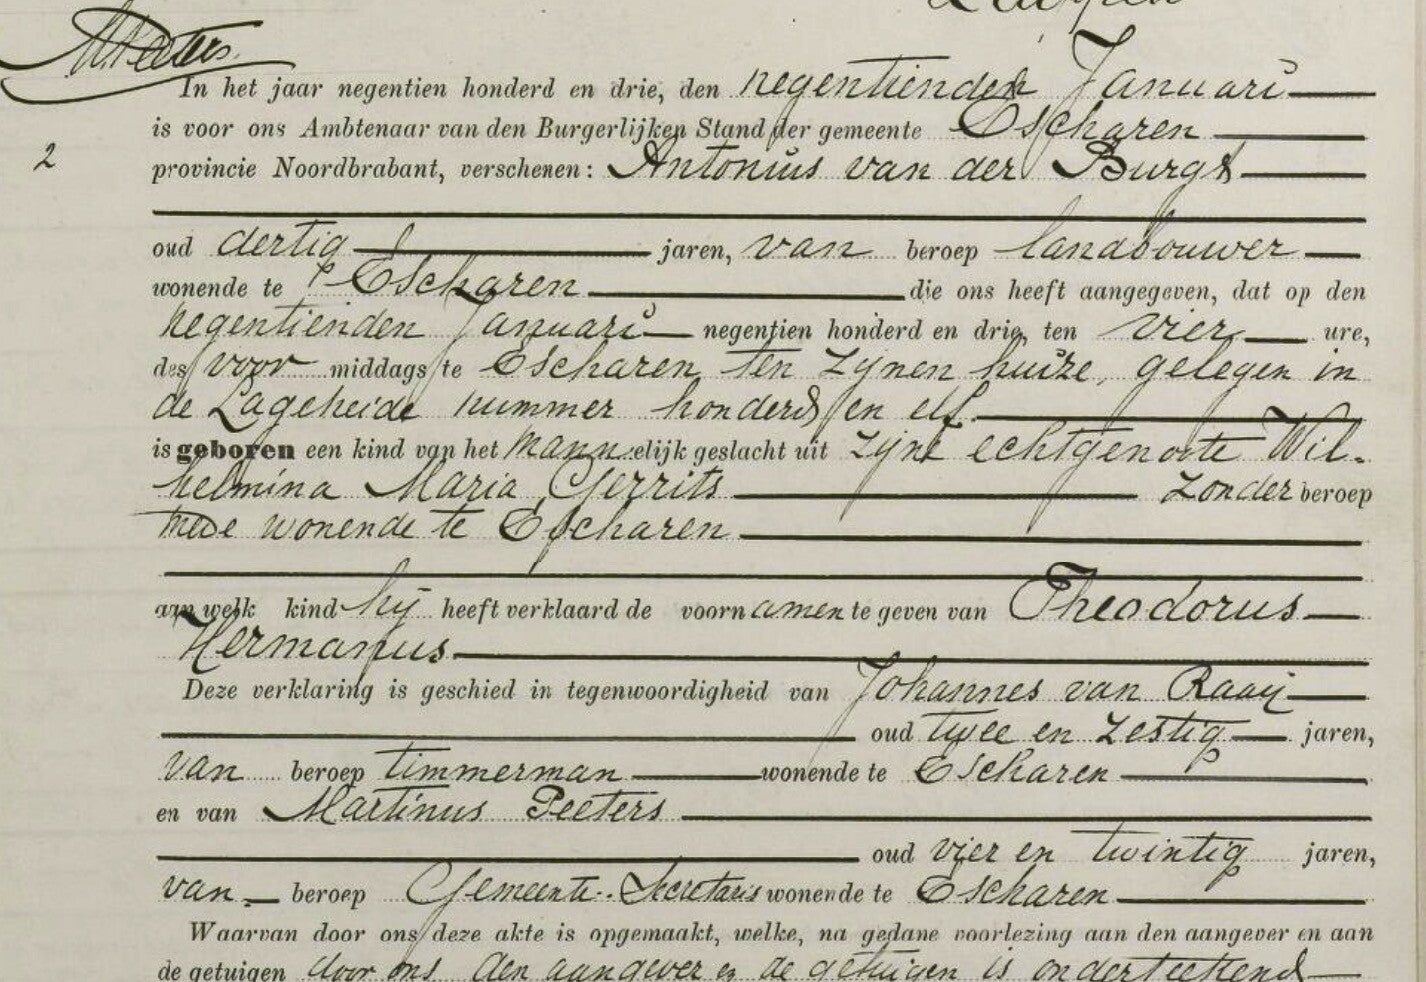 M Peeters.
In het jaar negentien honderd en drie, den negentienden Januari
is voor ons Ambtenaar van den Burgerlijken Stand der gemeente Escharen
2
provincie Noordbrabant, verschenen: Antonius van der Burgt
oud dertig jaren, van beroep landbouwer
wonende te Escharen die ons heeft aangegeven, dat op den
negentienden Januari negentien honderd en drie, ten vier ure,
des voor middags te Escharen ten zijnen huize, gelegen in
de Lageheide nummer honderd en elf
is geboren een kind van het mannelijk geslacht uit zijne echtgenoote Wil-
helmina Maria Gerrits zonder beroep
mede wonende te Escharen
aan welk kind hij heeft verklaard de voornamen te geven van Theodorus
Hermanus
Deze verklaring is geschied in tegenwoordigheid van Johannes van Raaij
oud twee en zestig jaren,
van beroep timmerman wonende te Escharen
en van Martinus Peeters
oud vier en twintig jaren,
van beroep Gemeente-Secretaris wonende te Escharen
Waarvan door ons deze akte is opgemaakt, welke, na gedane voorlezing aan den aangever en aan
de getuigen door ons, den aangever en de getuigen is onderteekend